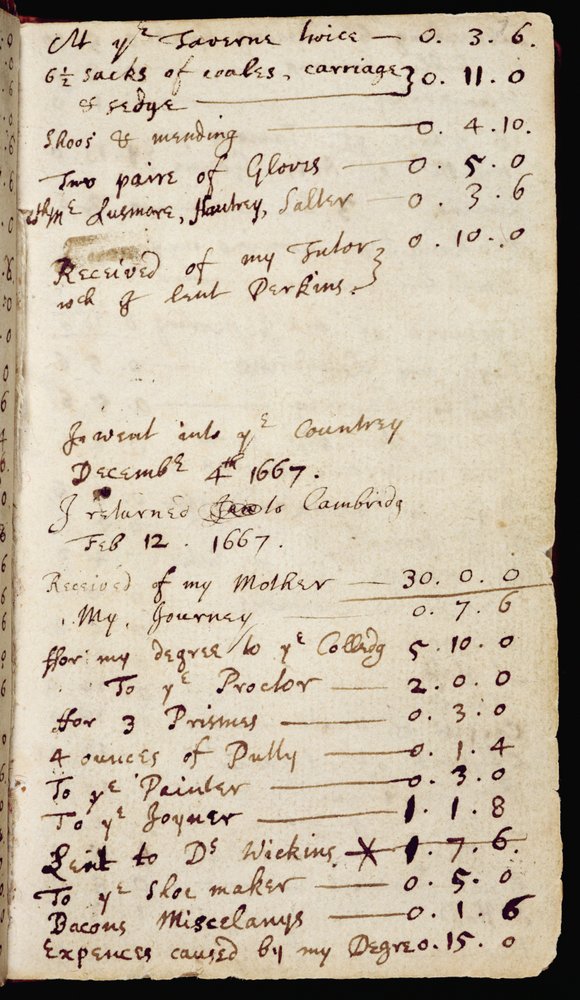 At yᵉ Taverne twice — 0. 3. 6.
6½ sacks of coales, carriage } 0. 11. 0
& sedge
Shoos & mending — 0. 4. 10.
Two paire of Gloves — 0. 5. 0
Lusmore, Hautrey, Salter — 0. 3. 6
Received of my Tutor } 0. 10. 0
wch I lent Perkins.
I went into yᵉ Countrey
Decembᵉ 4th 1667.
I returned to Cambridg
Feb 12. 1667.
Received of my Mother — 30. 0. 0
My Journey — 0. 7. 6
ffor my degree to yᵉ Colledg 5. 10. 0
To yᵉ Proctor — 2. 0. 0
ffor 3 Prismes — 0. 3. 0
4 ounces of Putty — 0. 1. 4
To yᵉ Painter — 0. 3. 0
To yᵉ Joyner — 1. 1. 8
Lent to Dˢ Wickins X 1. 7. 6.
To yᵉ Shoe maker — 0. 5. 0
Bacons Miscelanys — 0. 1. 6
Expences caused by my Degre 0. 15. 0